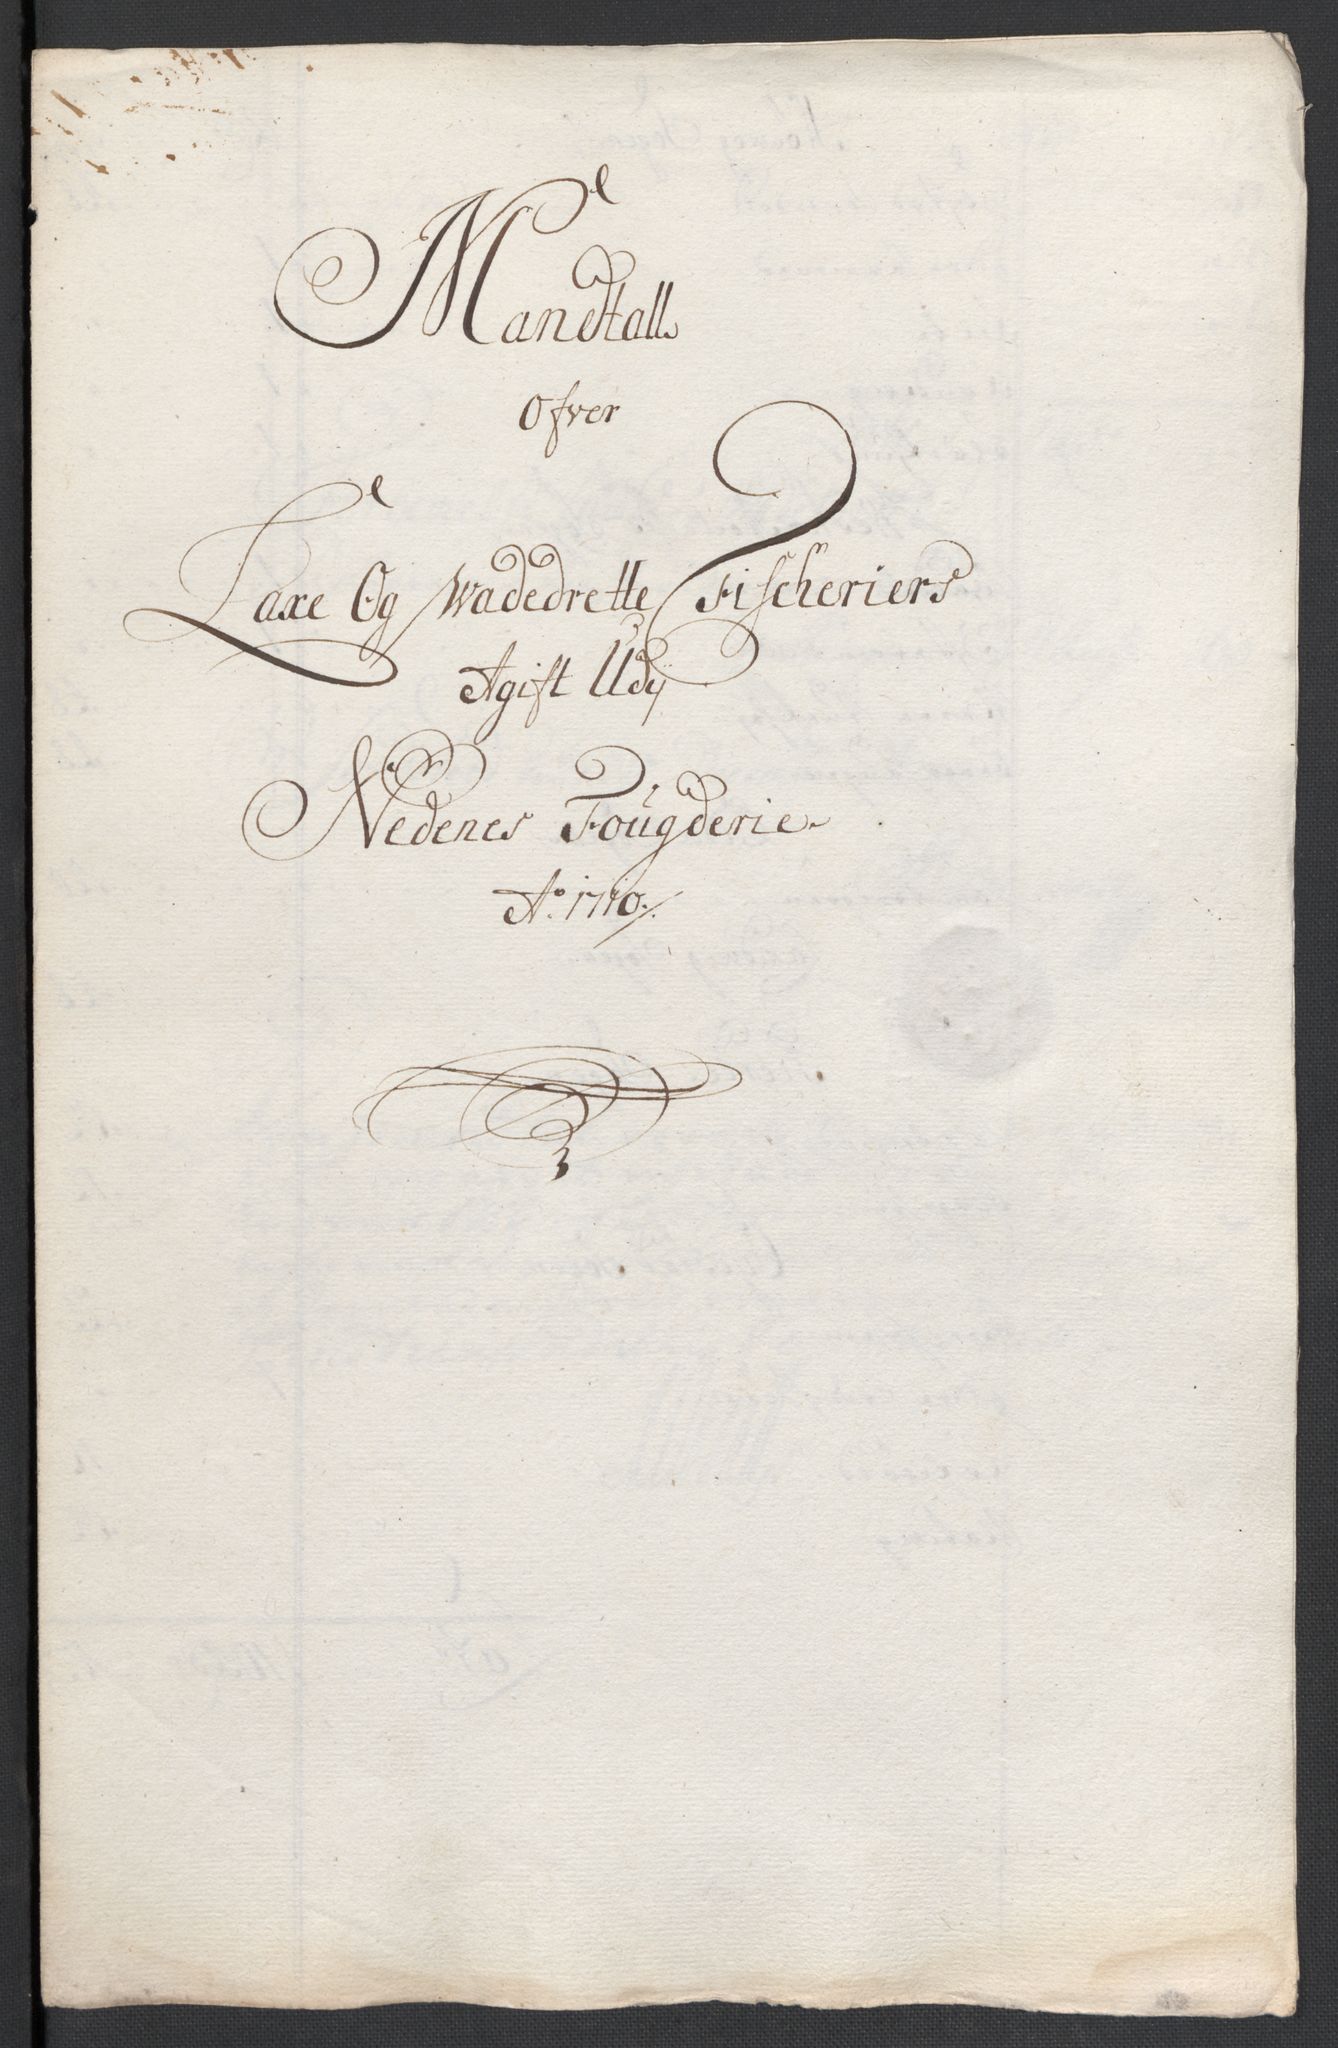 Mandtall
Ofver
Laxe Og Wadedrette Fischeriers
Agift Udj
Nedenes Fougderie
Ao. 1710.